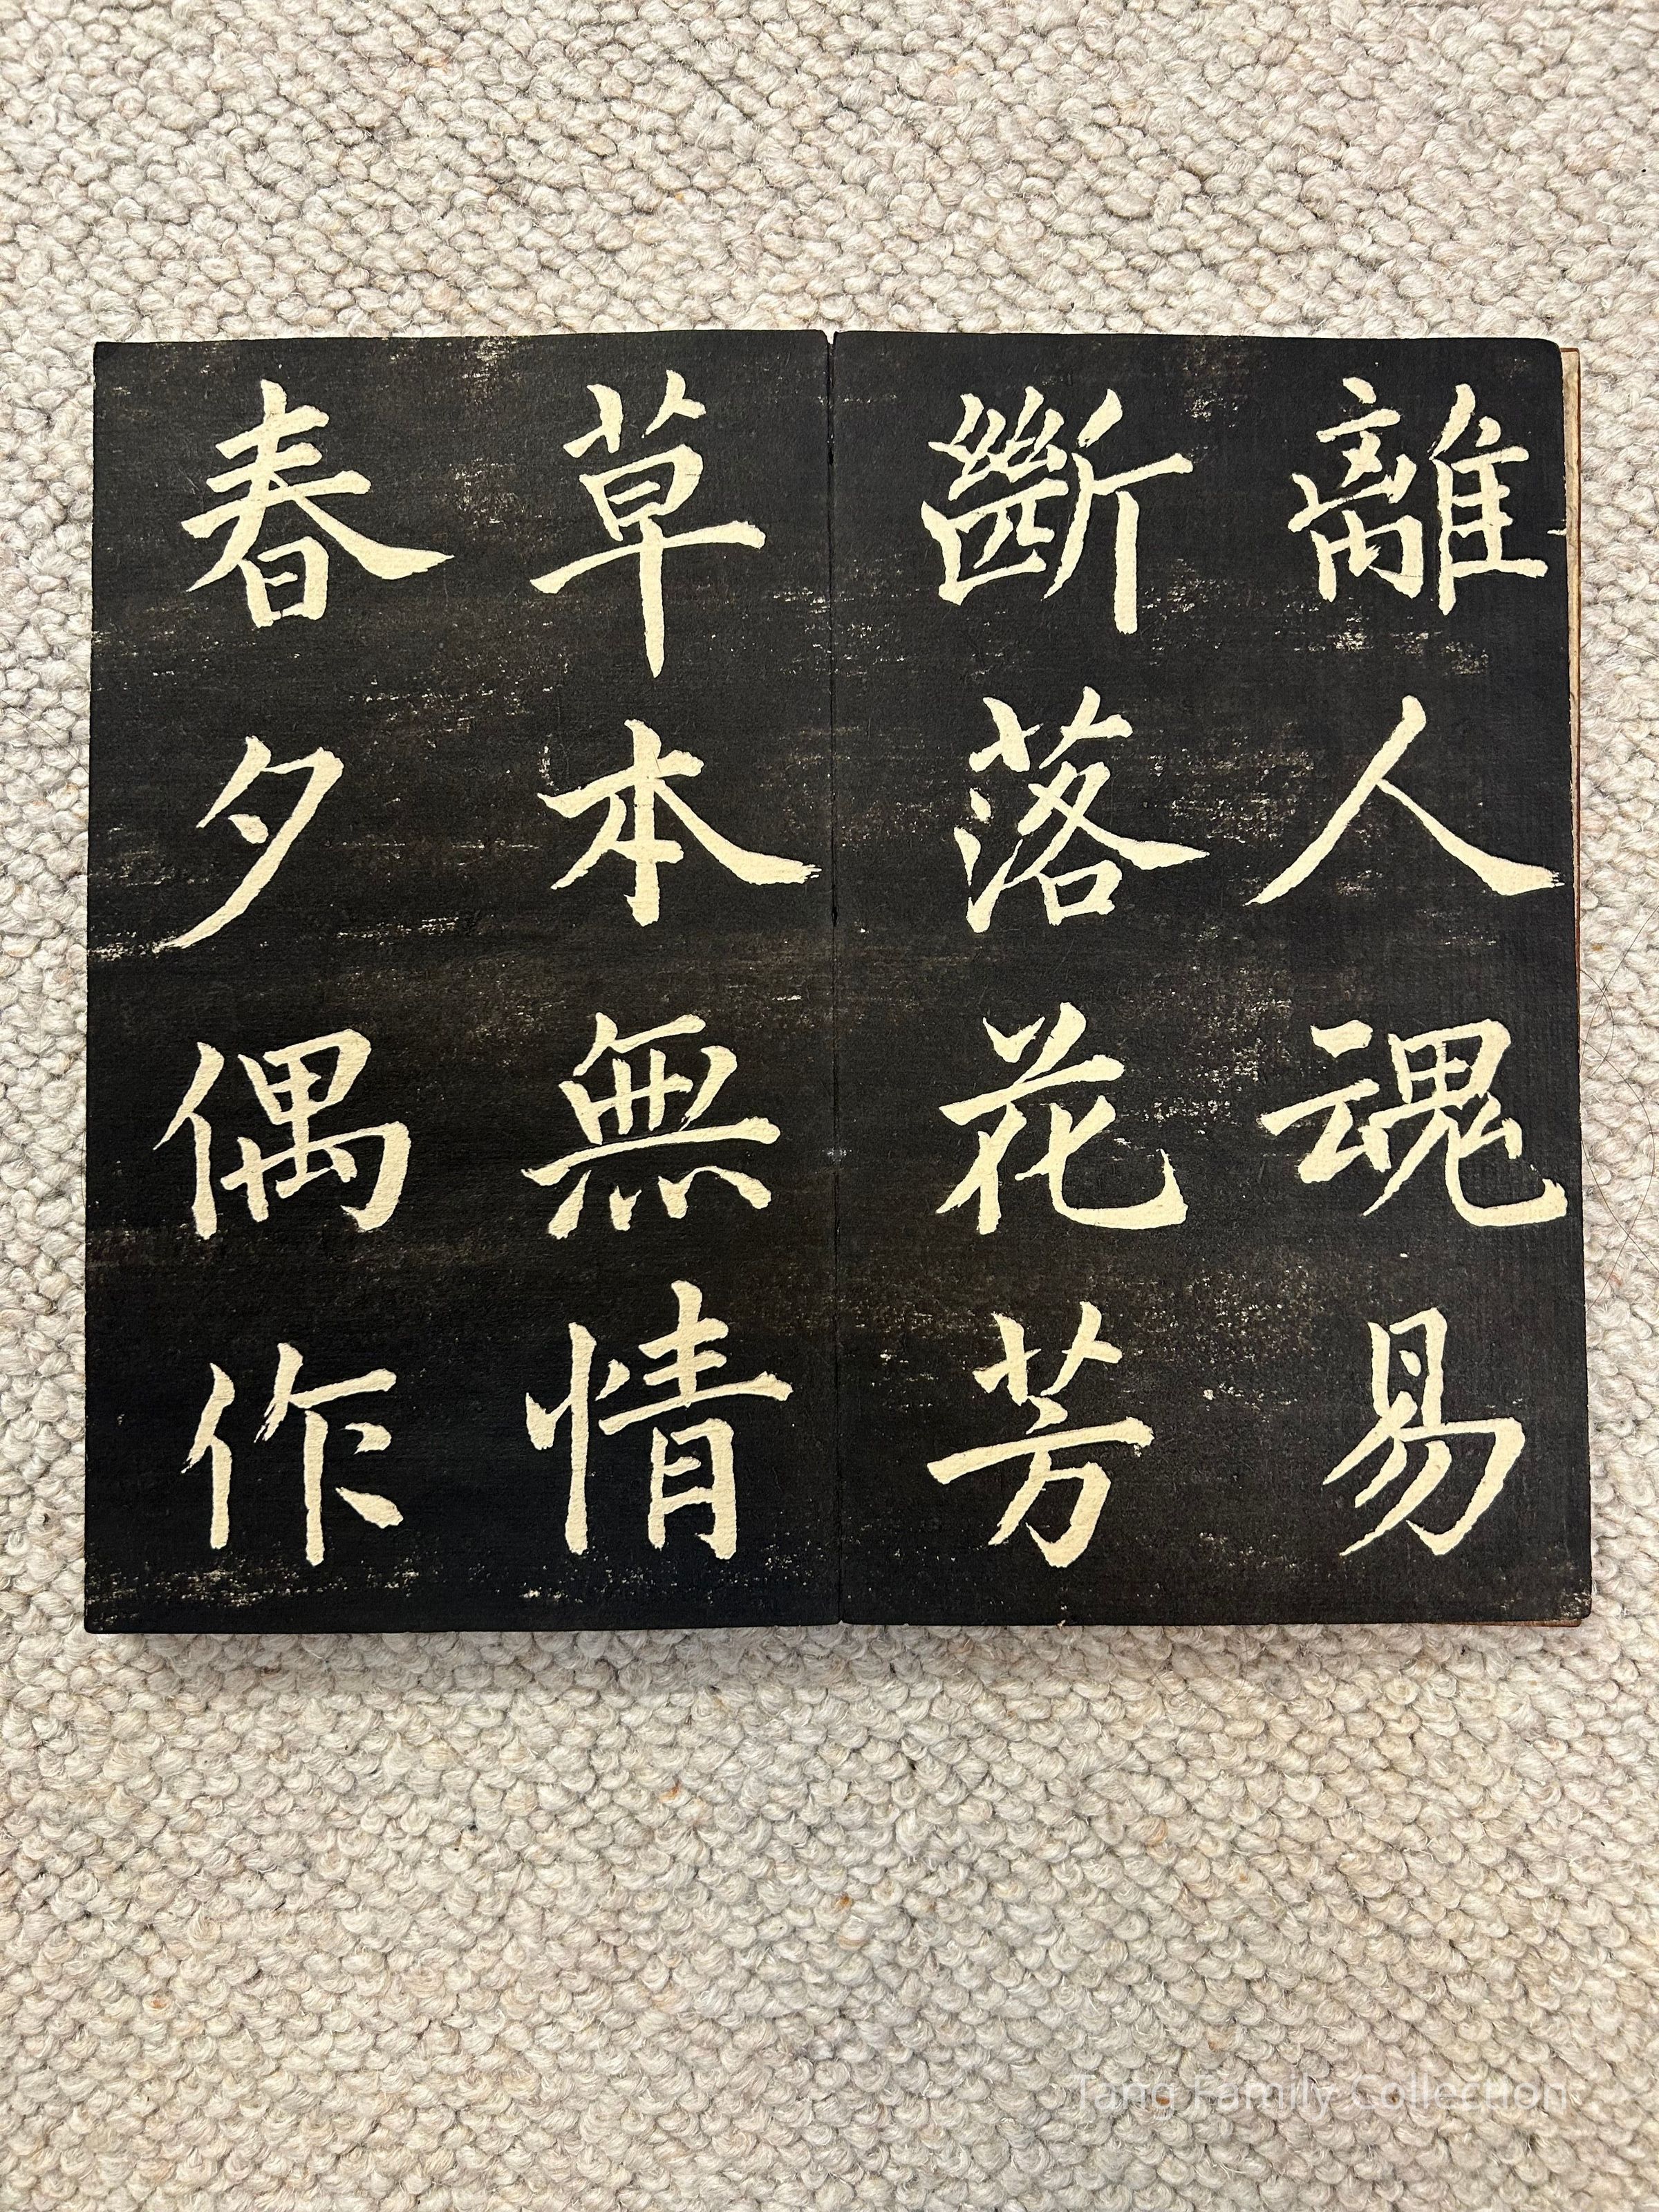 離人魂易
斷落花芳
草本無情
春夕偶作
Tang Family Collection